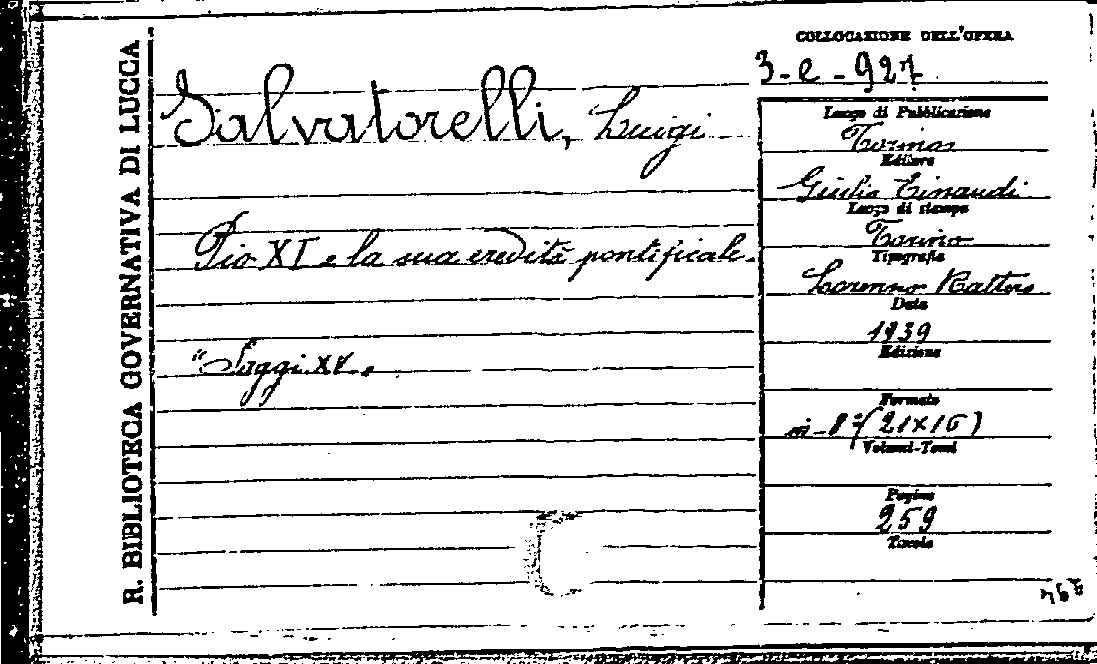 R. BIBLIOTECA GOVERNATIVA DI LUCCA
COLLOCAZIONE DELL'OPERA
3-e-927
Salvatorelli, Luigi
Pio XI e la sua eredità pontificale.
"Saggi XV.
Luogo di Pubblicazione
Torino
Editore
Giulio Einaudi
Luogo di stampa
Torino
Tipografia
Data
1939
Edizione
Formato
in-8°(21X16)
Volumi-Tomi
Pagine
259
Tavole